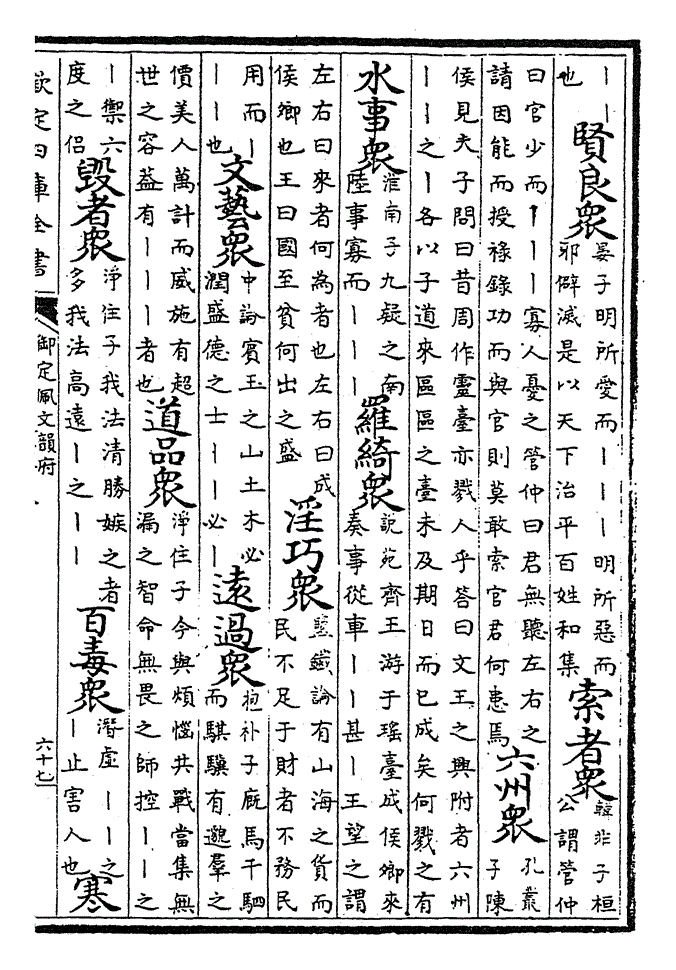 ｜｜
也
賢良衆
晏子明所愛而｜｜｜明所惡而
邪僻滅是以天下治平百姓和集
索者衆
韓非子桓
公謂管仲
曰官少而｜｜｜寡人憂之管仲曰君無聽左右之
請因能而授祿錄功而與官則莫敢索官君何患焉
六州衆
孔叢
子陳
侯見夫子問曰昔周作靈臺亦戮人乎答曰文王之興附者六州
｜｜之｜各以子道來區區之臺未及期日而已成矣何戮之有
水事衆
淮南子九疑之南
陸事寡而｜｜｜
羅綺衆
說苑齊王游于瑤臺成侯卿來
奏事從車｜｜甚｜王望之謂
左右曰來者何為者也左右曰成
侯卿也王曰國至貧何出之盛
淫巧衆
鹽鐵論有山海之貨而
民不足于財者不務民
用而｜
｜｜也
文藝衆
中論寳玉之山土木必
潤盛德之士｜｜必｜
逺過衆
抱朴子廐馬千駟
而騏驥有邈羣之
價美人萬計而威施有超
世之容葢有｜｜｜者也
道品衆
淨住子今與煩惱共戰當集無
漏之智命無畏之師控｜｜之
｜禦六
度之侣
毁者衆
淨住子我法清勝嫉之者
多我法高遠｜之｜｜
百毒衆
潛虚｜｜之
｜止害人也
寒
欽定四庫全書
御定佩文韻府
六十七